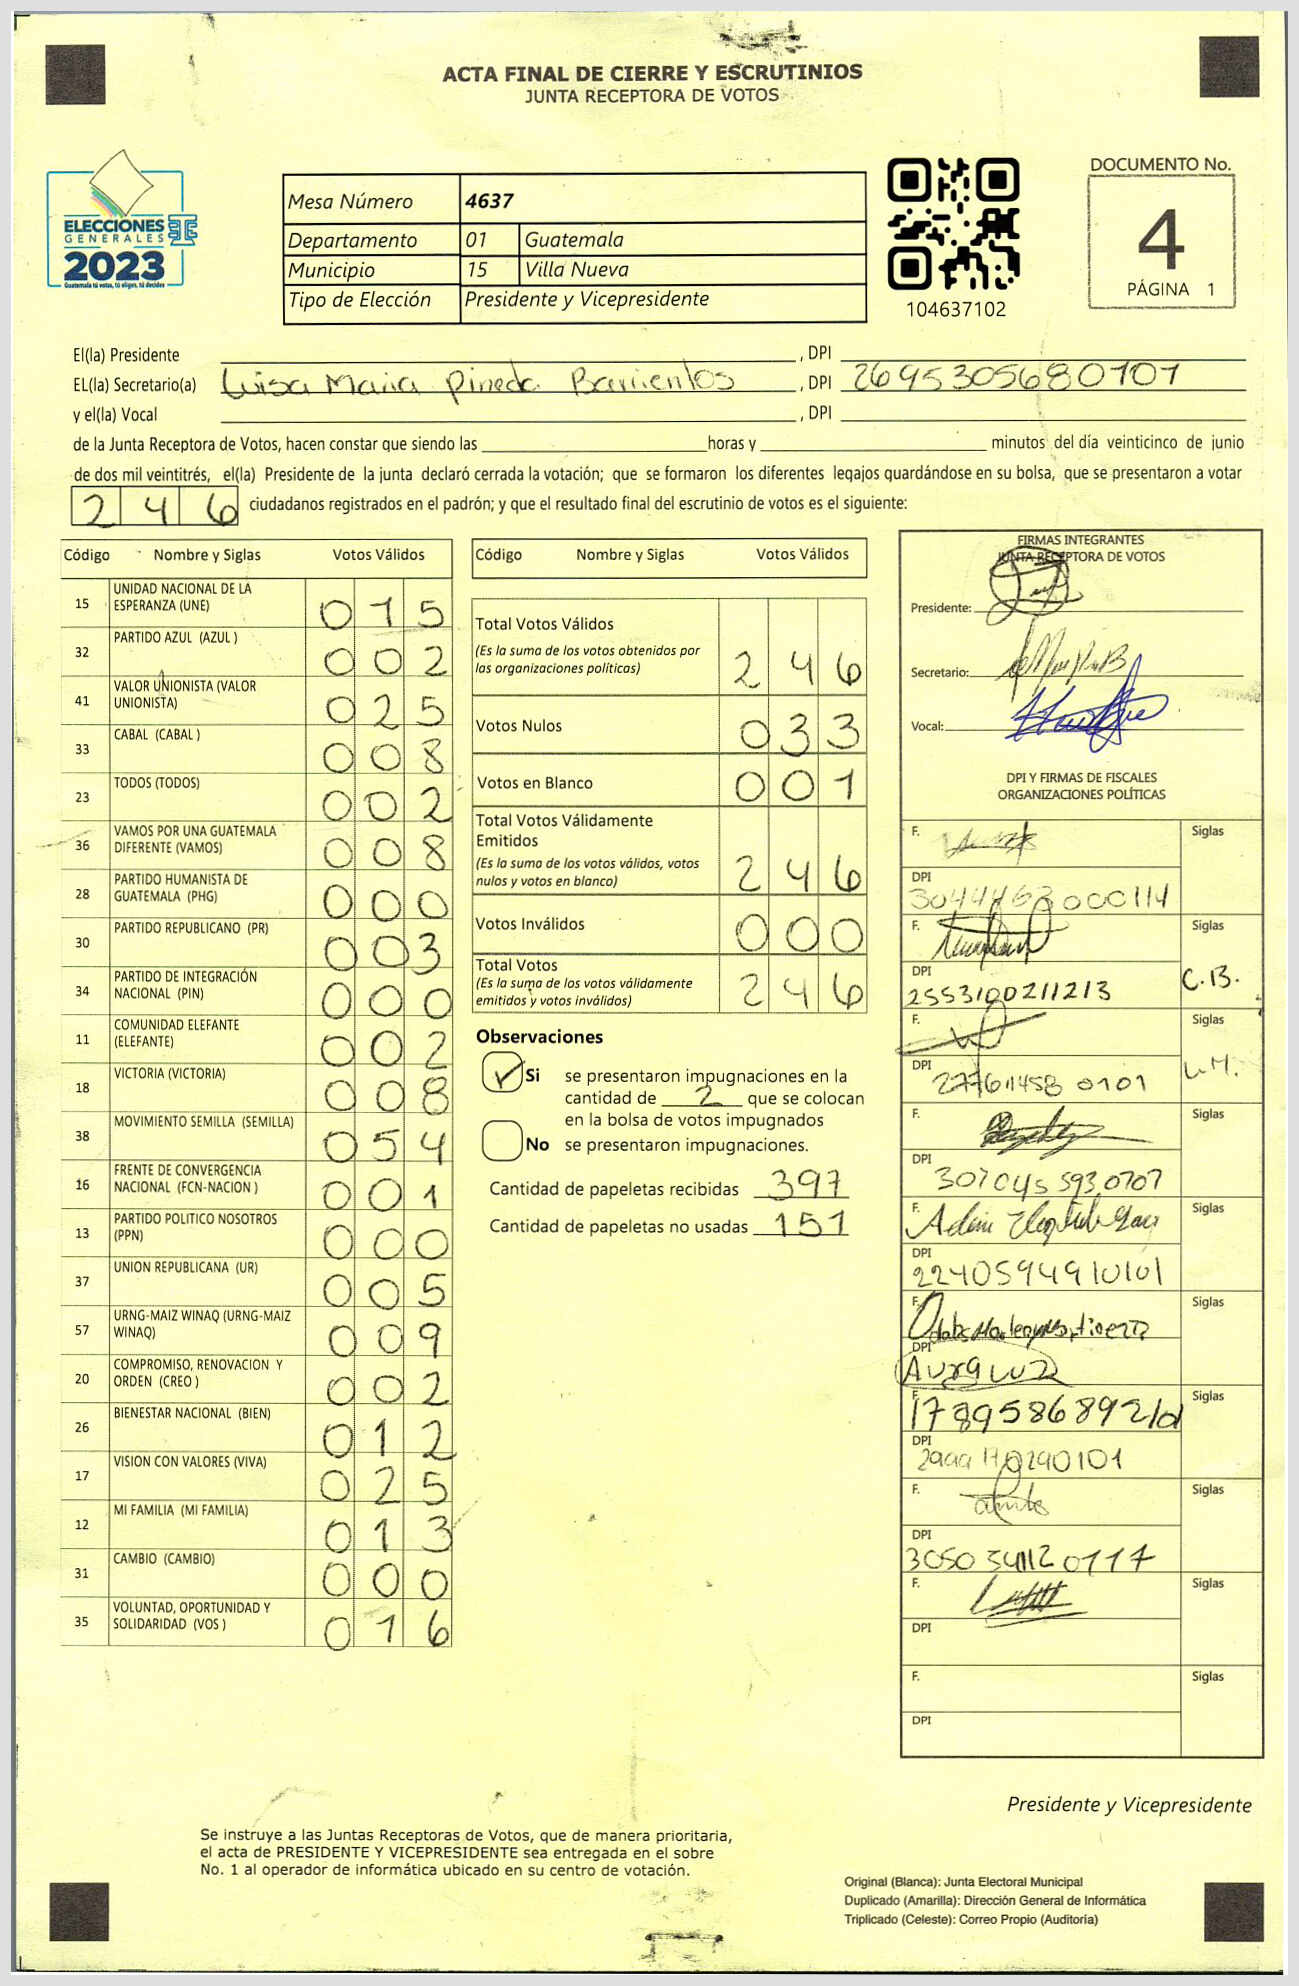 ACTA FINAL DE CIERRE Y ESCRUTINIOS
JUNTA RECEPTORA DE VOTOS
ELECCIONES
GENERALES
2023
Guatemala tú votas, tú eliges, tú decides
Mesa Número 4637
Departamento 01 Guatemala
Municipio 15 Villa Nueva
Tipo de Elección Presidente y Vicepresidente
104637102
DOCUMENTO No.
4
PÁGINA 1
El(la) Presidente , DPI
EL(la) Secretario(a) Luisa Maria Pineda Barrientos , DPI 2695305680101
y el(la) Vocal , DPI
de la Junta Receptora de Votos, hacen constar que siendo las horas y minutos del día veinticinco de junio
de dos mil veintitrés, el(la) Presidente de la junta declaró cerrada la votación; que se formaron los diferentes legajos guardándose en su bolsa, que se presentaron a votar
246 ciudadanos registrados en el padrón; y que el resultado final del escrutinio de votos es el siguiente:
Código Nombre y Siglas Votos Válidos
15 UNIDAD NACIONAL DE LA ESPERANZA (UNE) 015
32 PARTIDO AZUL (AZUL ) 002
41 VALOR UNIONISTA (VALOR UNIONISTA) 025
33 CABAL (CABAL ) 008
23 TODOS (TODOS) 002
36 VAMOS POR UNA GUATEMALA DIFERENTE (VAMOS) 008
28 PARTIDO HUMANISTA DE GUATEMALA (PHG) 000
30 PARTIDO REPUBLICANO (PR) 003
34 PARTIDO DE INTEGRACIÓN NACIONAL (PIN) 000
11 COMUNIDAD ELEFANTE (ELEFANTE) 002
18 VICTORIA (VICTORIA) 008
38 MOVIMIENTO SEMILLA (SEMILLA) 054
16 FRENTE DE CONVERGENCIA NACIONAL (FCN-NACION ) 001
13 PARTIDO POLITICO NOSOTROS (PPN) 000
37 UNION REPUBLICANA (UR) 005
57 URNG-MAIZ WINAQ (URNG-MAIZ WINAQ) 009
20 COMPROMISO, RENOVACION Y ORDEN (CREO ) 002
26 BIENESTAR NACIONAL (BIEN) 012
17 VISION CON VALORES (VIVA) 025
12 MI FAMILIA (MI FAMILIA) 013
31 CAMBIO (CAMBIO) 000
35 VOLUNTAD, OPORTUNIDAD Y SOLIDARIDAD (VOS ) 016
Código Nombre y Siglas Votos Válidos
Total Votos Válidos 246
(Es la suma de los votos obtenidos por
las organizaciones políticas)
Votos Nulos 033
Votos en Blanco 001
Total Votos Válidamente Emitidos 246
(Es la suma de los votos válidos, votos
nulos y votos en blanco)
Votos Inválidos 000
Total Votos 246
(Es la suma de los votos válidamente
emitidos y votos inválidos)
Observaciones
Si se presentaron impugnaciones en la
cantidad de 2 que se colocan
en la bolsa de votos impugnados
No se presentaron impugnaciones.
Cantidad de papeletas recibidas 397
Cantidad de papeletas no usadas 151
FIRMAS INTEGRANTES
JUNTA RECEPTORA DE VOTOS
Presidente:
Secretario:
Vocal:
DPI Y FIRMAS DE FISCALES
ORGANIZACIONES POLÍTICAS
F. Siglas
DPI
F. Siglas
DPI 2553100211213 C.B.
F. Siglas
DPI 277611458 0101
F. Siglas
DPI 307045 593 0707
F. Siglas
DPI 2240594910101
F. Siglas
DPI Aura Luz
F. 1789586892101 Siglas
DPI
F. Siglas
DPI 3050 34112 0117
F. Siglas
DPI
F. Siglas
DPI
Presidente y Vicepresidente
Se instruye a las Juntas Receptoras de Votos, que de manera prioritaria,
el acta de PRESIDENTE Y VICEPRESIDENTE sea entregada en el sobre
No. 1 al operador de informática ubicado en su centro de votación.
Original (Blanca): Junta Electoral Municipal
Duplicado (Amarilla): Dirección General de Informática
Triplicado (Celeste): Correo Propio (Auditoría)